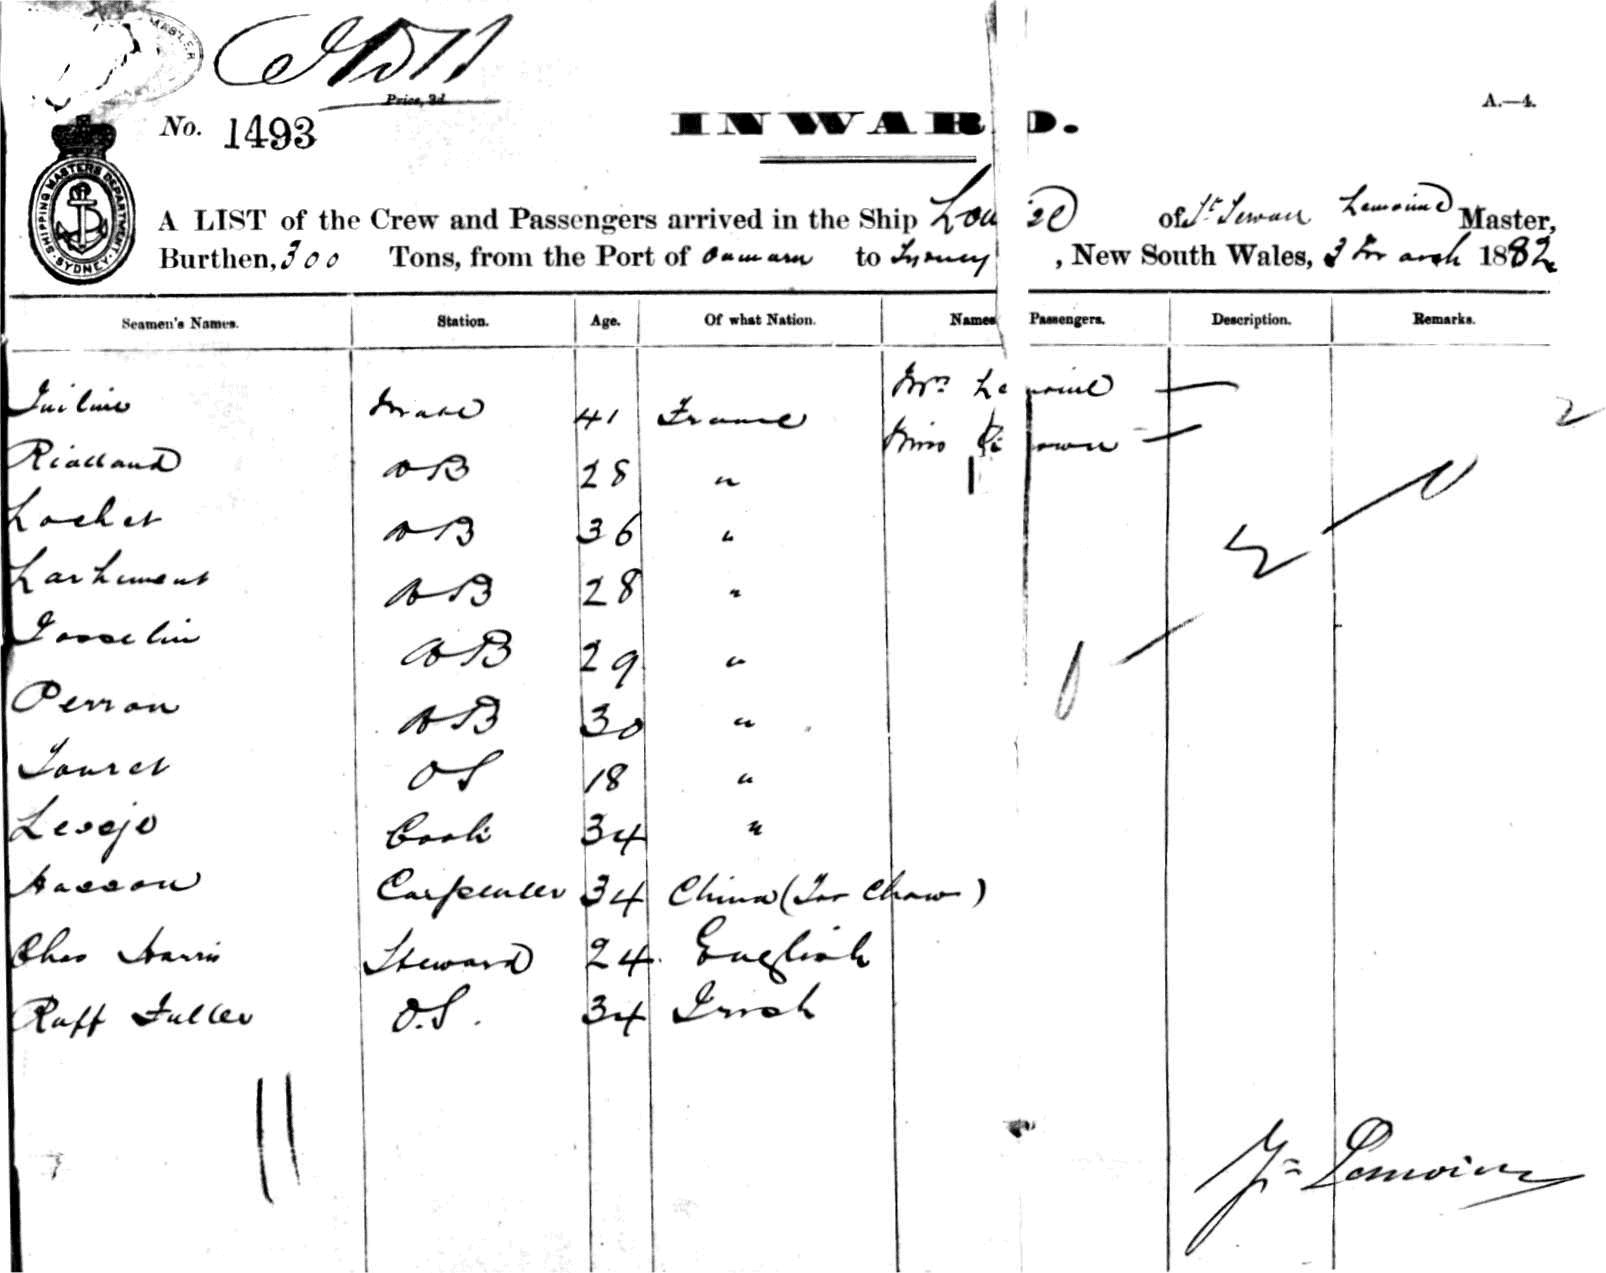 Price, 3d.
No. 1493
INWARD.
A.—4.
SHIPPING MASTERS DEPARTMENT SYDNEY
A LIST of the Crew and Passengers arrived in the Ship Lou ise of St Servan Lemoine Master,
Burthen, 300 Tons, from the Port of Oamaru to Sydney, New South Wales, 3 March 1882
Seamen's Names. Station. Age. Of what Nation. Names Passengers. Description. Remarks.
Mate 41 France Mrs Lemoine —
Rialland AB 28 " Miss
Lochet AB 36 "
AB 28 "
Josselin AB 29 "
Perron AB 30 "
Touret OS 18 "
Cook 34 "
Hasson Carpenter 34 China
Chas Harris Steward 24 English
Raff Fuller O.S. 34 Irish
11
Lemoine